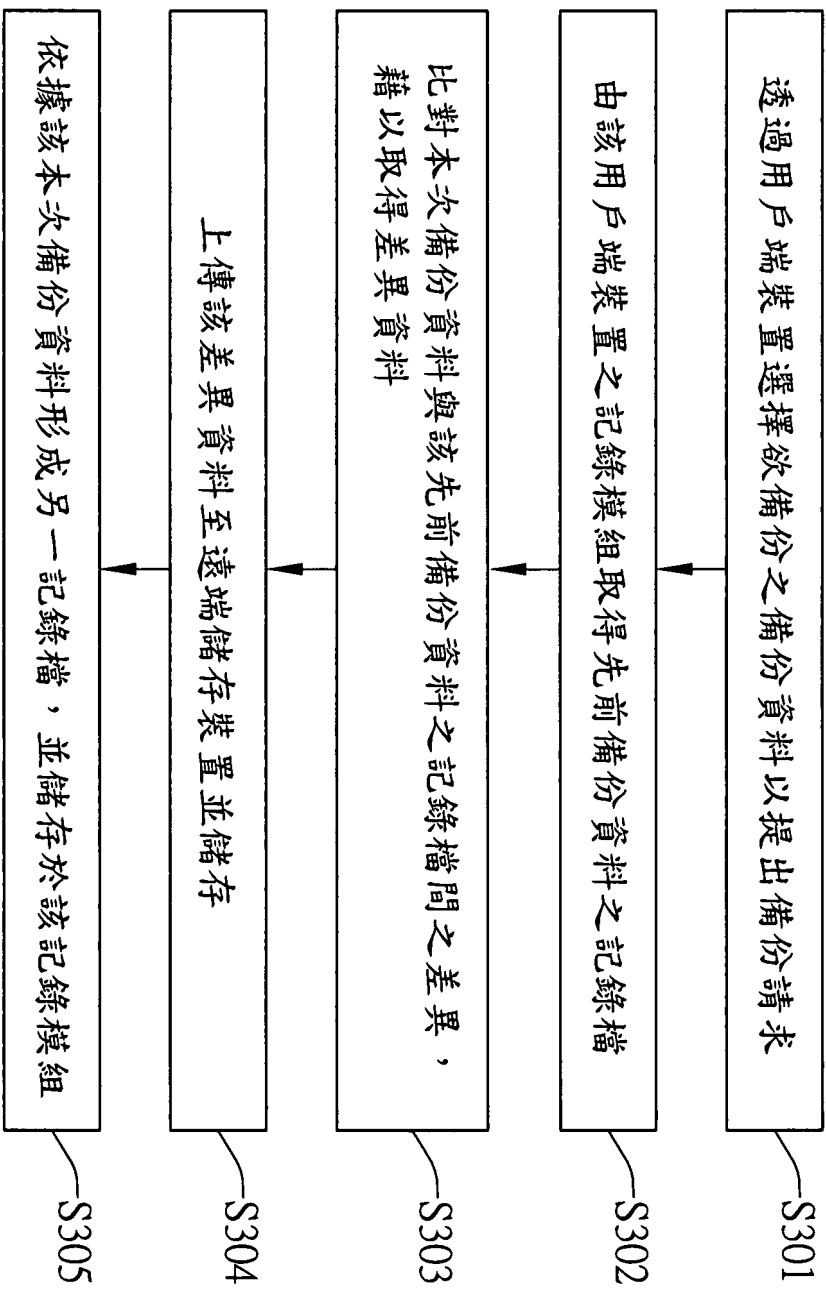 透過用戶端裝置選擇欲備份之備份資料以提出備份請求
S301
由該用戶端裝置之記錄模組取得先前備份資料之記錄檔
S302
比對本次備份資料與該先前備份資料之記錄檔間之差異，
藉以取得差異資料
S303
上傳該差異資料至遠端儲存裝置並儲存
S304
依據該本次備份資料形成另一記錄檔，並儲存於該記錄模組
S305